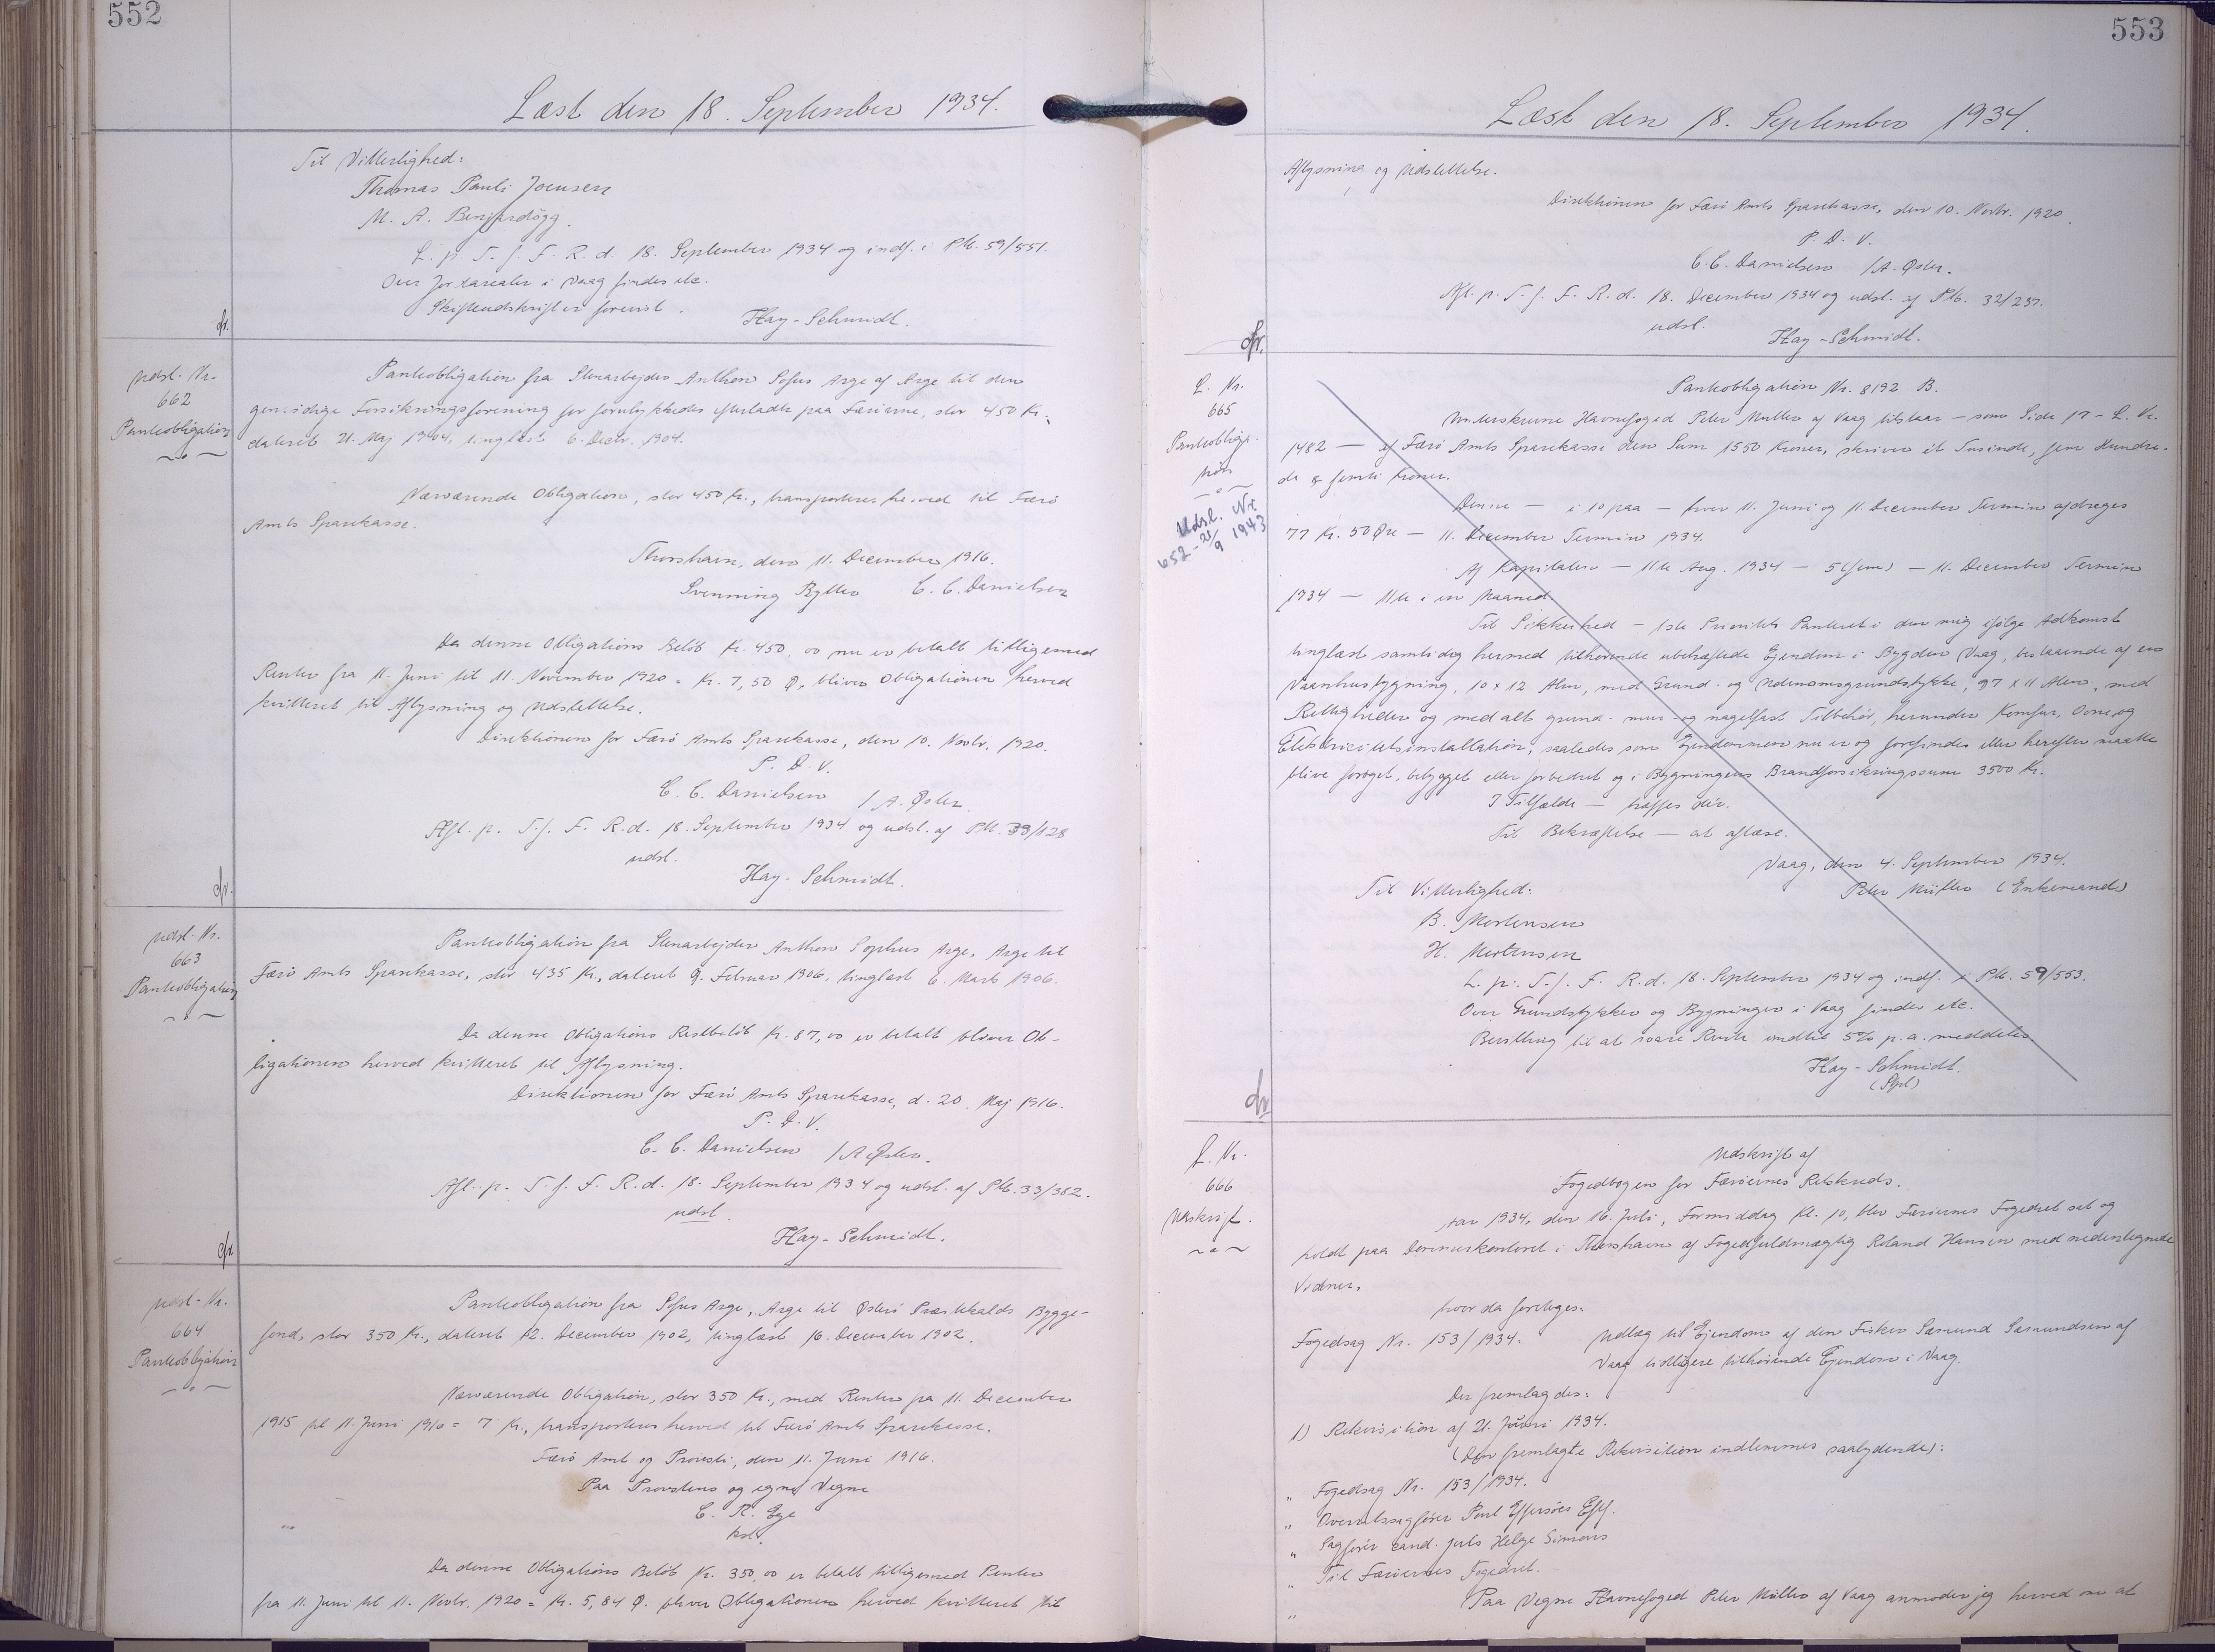 552
Læst den 18. September 1934.
Til Vitterlighed:
Thomas Pauli Joensen
M. A.
L. p. T. f. F. R. d. 18. September 1934 og indf. i Ptb. 59/551.
Over Jordarealer i Vaag findes etc.
Skifteudskrift er forevist.
Hay-Schmidt.
udsl. Nr.
662
Panteobligation
Panteobligation fra Stenarbejder Anthon Sofus Arge af Arge til den
gensidige Forsikringsforening for forulykkedes efterladte paa Færøerne, stor 450 Kr.,
dateret 21. Maj 1904, tinglæst 6. Decbr. 1904.
Nærværende Obligation, stor 450 Kr., transporteres herved til Færø
Amts Sparekasse.
Thorshavn, den 11. December 1916.
Svenning Rytter C. C. Danielsen
Da denne Obligations Beløb Kr. 450,00 nu er betalt tilligemed
Renter fra 11. Juni til 11. November 1920 = Kr. 7,50 Ø, bliver Obligationen herved
kvitteret til Aflysning og Udslettelse.
Direktionen for Færø Amts Sparekasse, den 10. Novbr. 1920.
P. D. V.
C. C. Danielsen / A. Øster.
Afl. p. T. f. F. R. d. 18. September 1934 og udsl. af Ptb. 33/128
udsl.
Hay-Schmidt.
udsl. Nr.
663
Panteobligation
Panteobligation fra Stenarbejder Anthon Sophus Arge, Arge til
Færø Amts Sparekasse, stor 435 Kr., dateret 9. Februar 1906, tinglæst 6. Marts 1906.
Da denne Obligations Restbeløb Kr. 87,00 er betalt bliver Ob-
ligationen herved kvitteret til Aflysning.
Direktionen for Færø Amts Sparekasse, d. 20. Maj 1916.
P. D. V.
C. C. Danielsen / A Øster.
Afl. p. T. f. F. R. d. 18. September 1934 og udsl. af Ptb. 33/382.
udsl.
Hay-Schmidt.
udsl. Nr.
664
Panteobligation
Panteobligation fra Sofus Arge, Arge til Østerø Præstekalds Bygge-
fond, stor 350 Kr., dateret 12. December 1902, tinglæst 16. December 1902.
Nærværende Obligation, stor 350 Kr., med Renter fra 11. December
1915 til 11. Juni 1916 = 7 Kr., transporteres herved til Færø Amts Sparekasse.
Færø Amt og Provsti, den 11. Juni 1916.
Paa Provstens og egne Vegne
C. R.
kst.
Da denne Obligations Beløb Kr. 350,00 er betalt tilligemed Renter
fra 11. Juni til 11. Novbr. 1920 = Kr. 5,84 Ø. bliver Obligationen herved kvitteret til
553
Læst den 18. September 1934.
Aflysning og Udslettelse.
Direktionen for Færø Amts Sparekasse, den 10. Novbr. 1920.
P. D. V.
C. C. Danielsen / A. Øster.
Afl. p. T. f. F. R. d. 18. December 1934 og udsl. af Ptb. 32/237.
udsl.
Hay-Schmidt.
L. Nr.
665
Panteobliga-
tion
Udsl. Nr.
652 - 21/9 1943
Panteobligation Nr. 8192 B.
Underskrevne Havnefoged Peter Müller af Vaag tilstaar — som Side 17 - L. Nr.
1482 — af Færø Amts Sparekasse den Sum 1550 Kroner, skriver et Tusinde, fem Hundre-
de & femti Kroner.
Denne — i 10 paa — hver 11. Juni og 11. December Termin afdrages
77 Kr. 50 Øre — 11. December Termin 1934.
Af Kapitalen — 11te Aug. 1934 — 5 (fem) — 11. December Termin
1934 — 11te i en Maaned.
Til Sikkerhed — 1ste Prioritets Panteret i den mig ifølge Adkomst
tinglæst samtidig hermed tilhørende ubehæftede Ejendom i Bygden Vaag, bestaaende af en
Vaanhusbygning, 10 x 12 Alen, med Grund- og Udenomsgrundstykke, 97 x 11 Alen, med
Rettigheder og med alt grund- mur- og nagelfast Tilbehør, herunder Komfur, Ovne og
Elektricitetsinstallation, saaledes som Ejendommen nu er og forefindes eller herefter maatte
blive forøget, bebygget eller forbedret og i Bygningens Brandforsikringssum 3500 Kr.
I Tilfælde — træffes dér.
Til Bekræftelse — at aflæse.
Vaag, den 4. September 1934.
Peter Müller (Enkemand)
Til Vitterlighed:
B. Mortensen
H. Mortensen
L. p. T. f. F. R. d. 18. September 1934 og indf. i Ptb. 59/553.
Over Grundstykker og Bygninger i Vaag findes etc.
Bevilling til at svare Rente indtil 5% p. a. meddeles.
Hay-Schmidt.
L. Nr.
666
Udskrift.
Udskrift af
Fogedbogen for Færøernes Retskreds.
Aar 1934, den 16. Juli, Formiddag Kl. 10, blev Færøernes Fogedret sat og
holdt paa Dommerkontoret i Thorshavn af Fogedfuldmægtig Roland Hansen med nedentegnede
Vidner,
hvor da foretoges:
Fogedsag Nr. 153/1934. Udlæg til Ejendom af den Fisker Sæmund Sæmundsen af
Vaag tidligere tilhørende Ejendom i Vaag.
Der fremlagdes:
1) Rekvisition af 21. Juni 1934.
(Den fremlagte Rekvisition indlemmes saalydende):
" Fogedsag Nr. 153/1934.
" Overretssagfører Poul Effersøes Eftf.
" Sagfører cand. juris Helge Simons
" Til Færøernes Fogedret.
" Paa Vegne Havnefoged Peter Müller af Vaag anmoder jeg herved om at